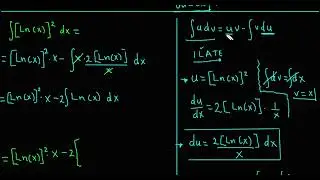 ∫[Ln(x)]² dx =
= [Ln(x)]²·x - ∫x·2[Ln(x)]/x dx
= [Ln(x)]²·x - 2∫[Ln(x)] dx
= [Ln(x)]²·x - 2[
∫u dv = uv - ∫v du
ILATE
u = [Ln(x)]²
∫dv = ∫dx
v = x
du/dx = 2[Ln(x)]·1/x
du = 2[Ln(x)]/x dx